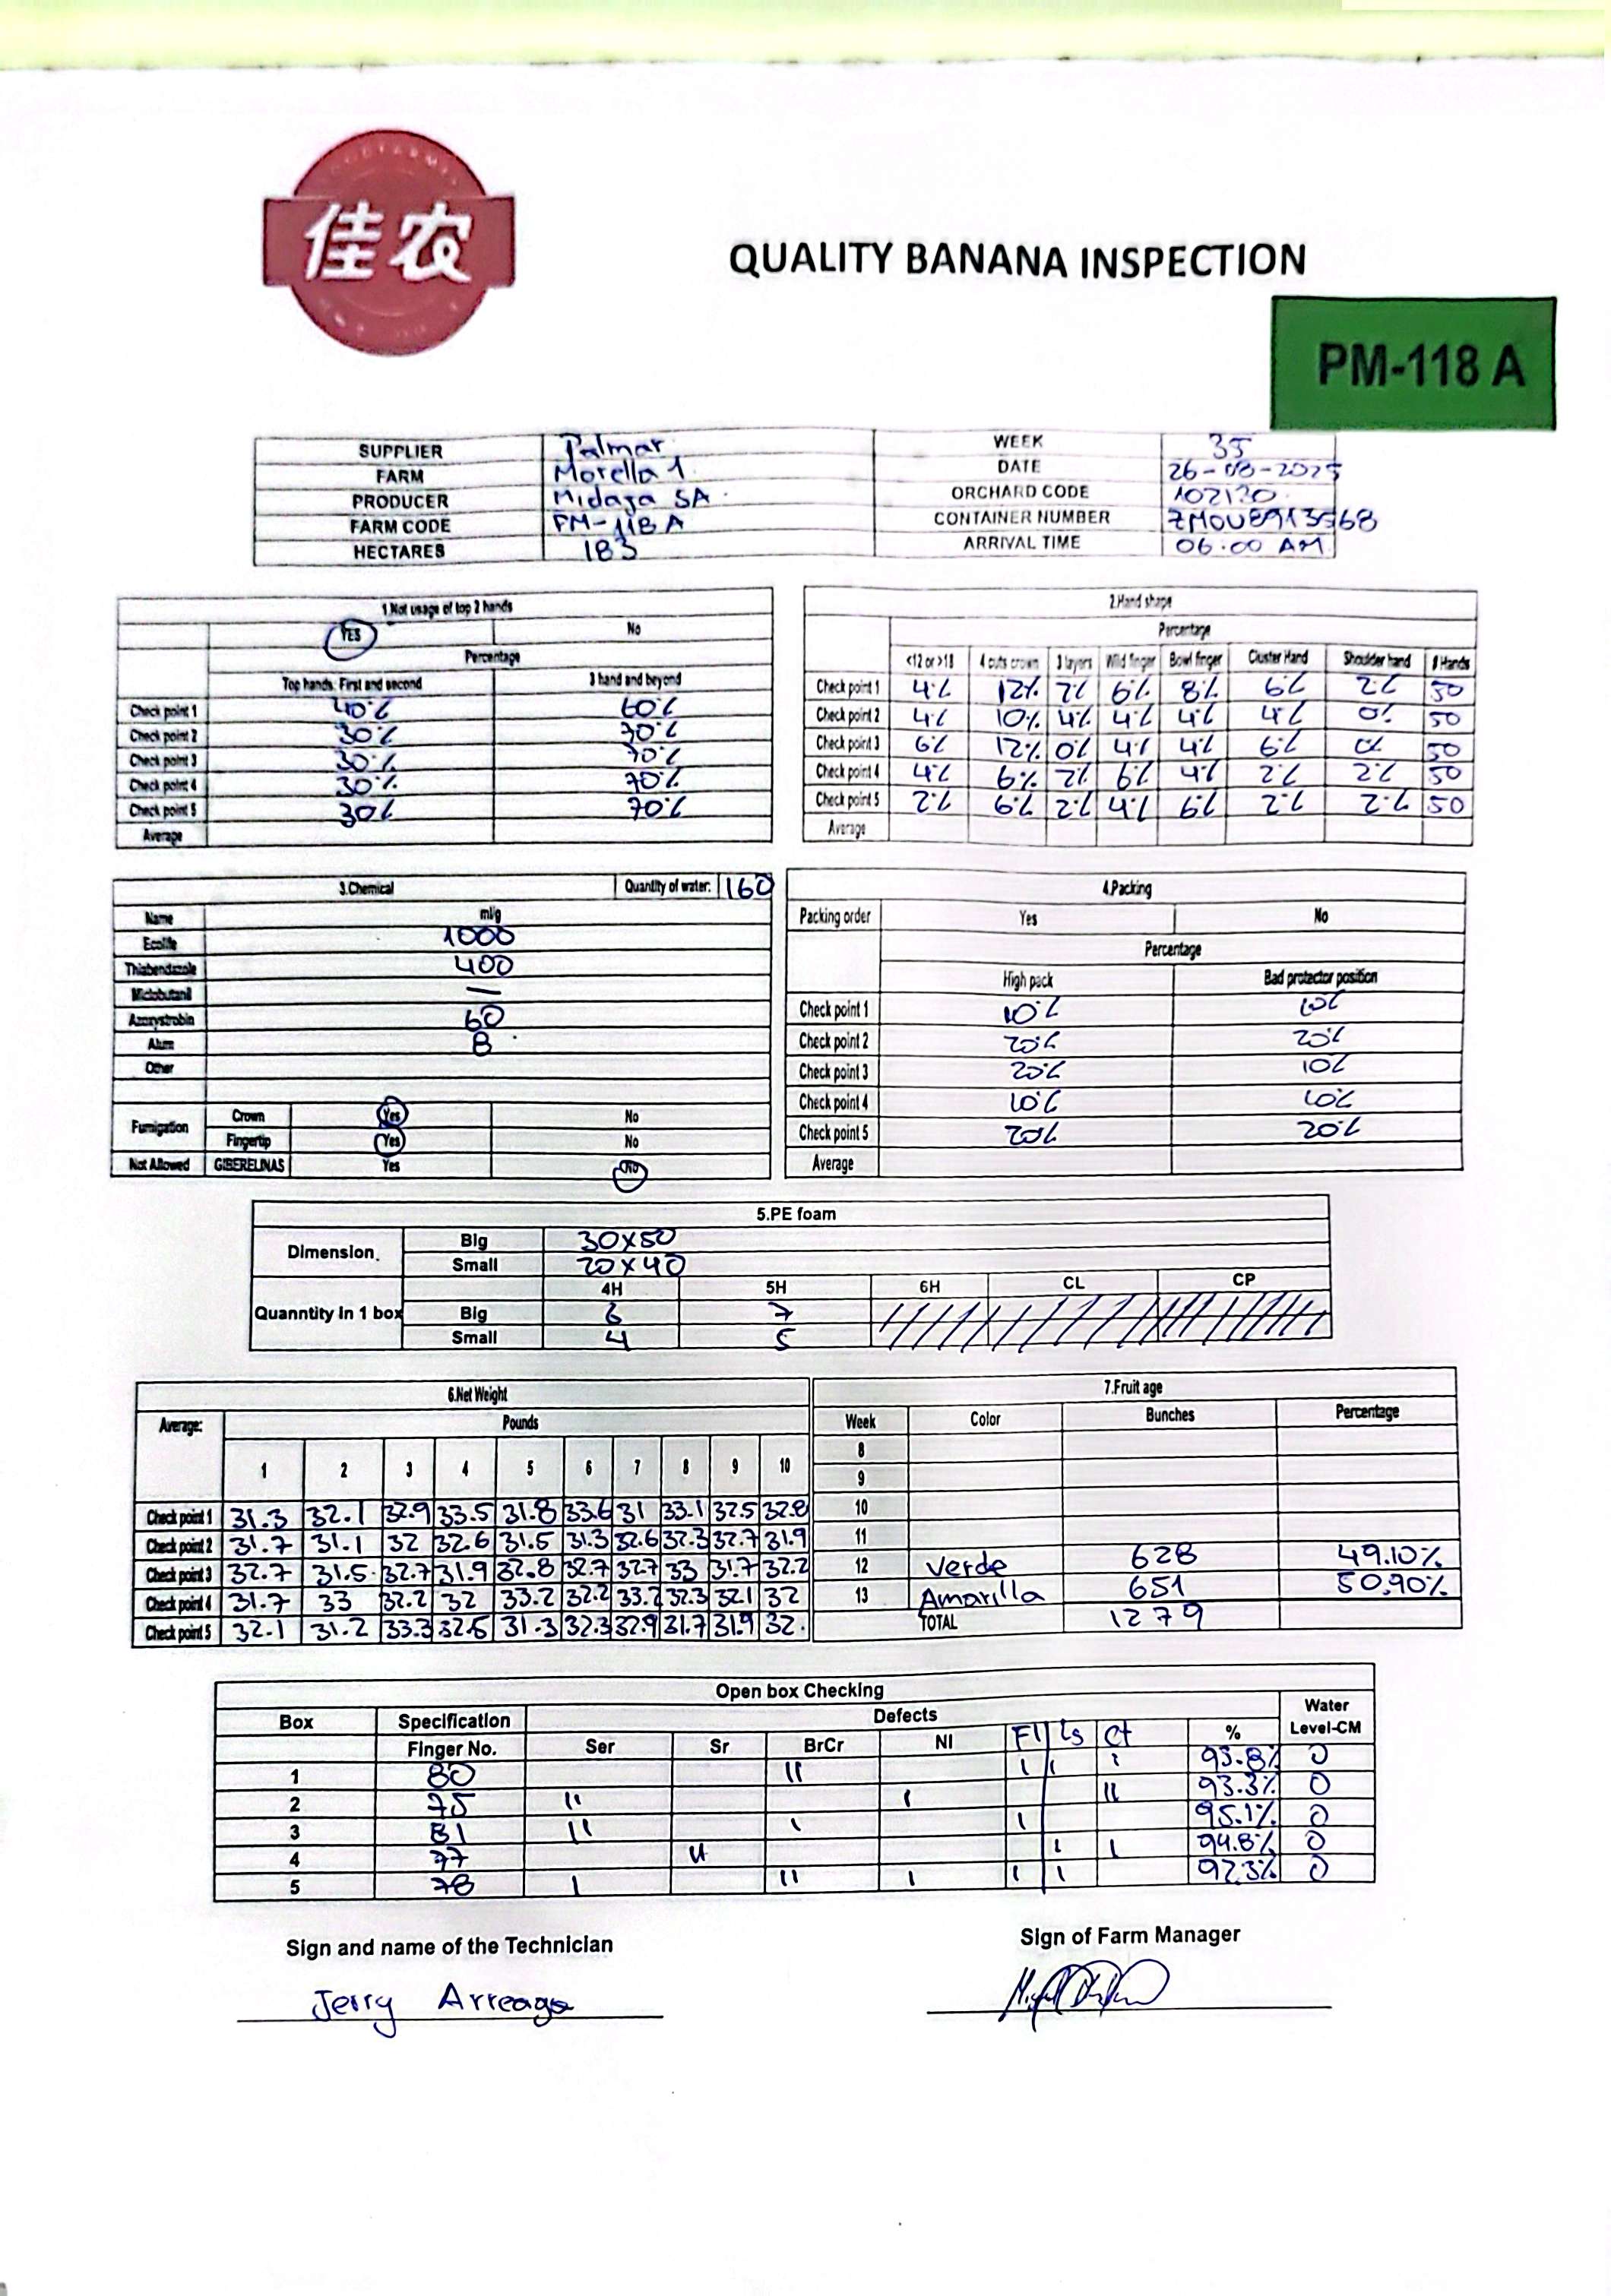 佳农
QUALITY BANANA INSPECTION
PM-118 A
SUPPLIER Palmar WEEK 35
FARM Morella 1 DATE 26-08-2025
PRODUCER Midaja SA ORCHARD CODE 102120
FARM CODE PM-118 A CONTAINER NUMBER ZMOU8913568
HECTARES 183 ARRIVAL TIME 06:00 AM
1.Not usage of top 2 hands
YES No
Percentage
Top hands: First and second 3 hand and beyond
Check point 1 40% 60%
Check point 2 30% 70%
Check point 3 30% 70%
Check point 4 30% 70%
Check point 5 30% 70%
Average
2.Hand shape
Percentage
<12 or >18 4 cuts crown 3 layers Wild finger Bowl finger Cluster Hand Shoulder hand # Hands
Check point 1 4% 12% 2% 6% 8% 6% 2% 50
Check point 2 4% 10% 4% 4% 4% 4% 0% 50
Check point 3 6% 12% 0% 4% 4% 6% 0% 50
Check point 4 4% 6% 2% 6% 4% 2% 2% 50
Check point 5 2% 6% 2% 4% 6% 2% 2% 50
Average
3.Chemical Quantity of water: 160
Name ml/g
Ecolife 1000
Thiabendazole 400
Miclobutanil —
Azoxystrobin 60
Alum 8
Other
Fumigation Crown Yes No
Fingertip Yes No
Not Allowed GIBERELINAS Yes No
4.Packing
Packing order Yes No
Percentage
High pack Bad protector position
Check point 1 10% 10%
Check point 2 20% 20%
Check point 3 20% 10%
Check point 4 10% 10%
Check point 5 20% 20%
Average
5.PE foam
Dimension. Big 30x50
Small 20x40
4H 5H 6H CL CP
Quanntity in 1 box Big 6 7
Small 4 5
6.Net Weight
Average: Pounds
1 2 3 4 5 6 7 8 9 10
Check point 1 31.3 32.1 32.9 33.5 31.8 33.6 31 33.1 32.5 32.8
Check point 2 31.7 31.1 32 32.6 31.5 31.3 32.6 32.3 32.7 31.9
Check point 3 32.7 31.5 32.7 31.9 32.8 32.7 32.7 33 31.7 32.2
Check point 4 31.7 33 32.2 32 33.2 32.2 33.2 32.3 32.1 32
Check point 5 32.1 31.2 33.3 32.6 31.3 32.3 32.9 31.7 31.9 32.
7.Fruit age
Week Color Bunches Percentage
8
9
10
11
12 Verde 628 49.10%
13 Amarilla 651 50.90%
TOTAL 1279
Open box Checking
Box Specification Defects Water Level-CM
Finger No. Ser Sr BrCr NI Fl Ls Ct %
1 80 II I I I 93.8% 0
2 75 II I II 93.3% 0
3 81 II I I 95.1% 0
4 77 II I I 94.8% 0
5 78 I II I I I 92.3% 0
Sign and name of the Technician Sign of Farm Manager
Jerry Arreaga